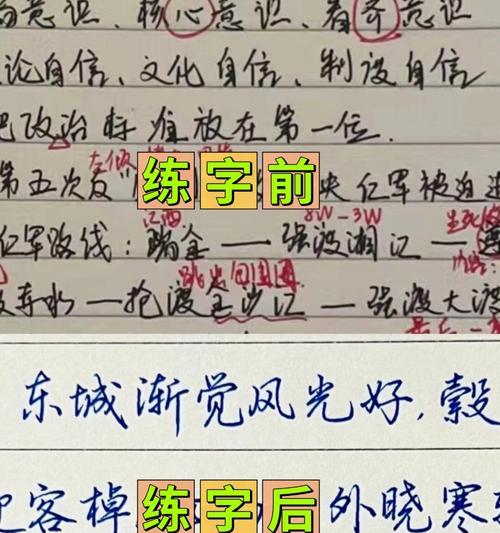 意识、核心意识、看齐意识
论自信、文化自信、制设自信
把政治标准放在第一位.
左倾
第五次反 央红军被迫
练字前
江西 8W-3W
红军路线:瑞金——强渡湘江——遵
跳出包围圈
赤水—抢渡金沙江—强渡大渡
东城渐觉风光好,縠
迎客棹 外晓寒轻
练字后